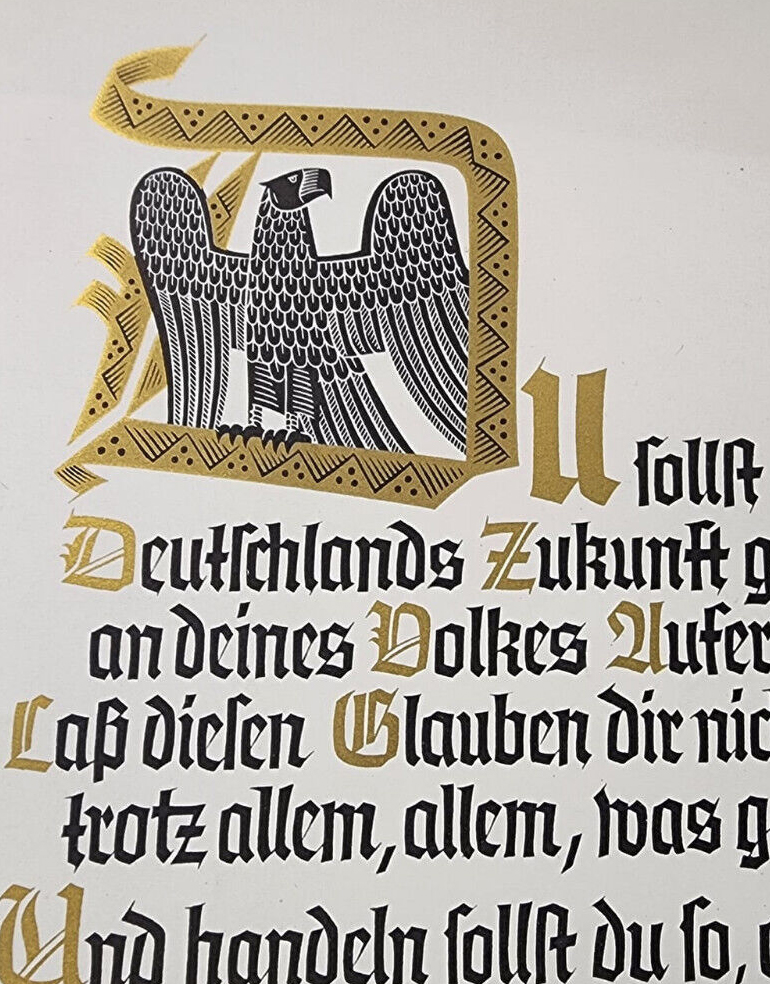 Du sollst
Deutschlands Zukunft
an deines Volkes
Laß diesen Glauben dir
trotz allem, allem, was
Und handeln sollst du so,